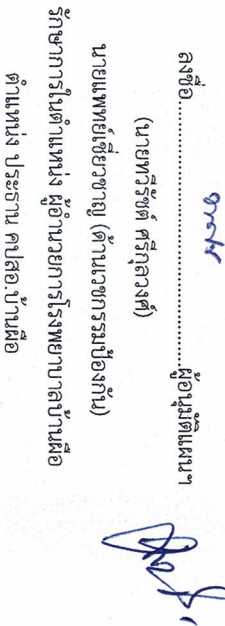 ลงชื่อ................................ผู้อนุมัติแผนฯ
(นายทวีรัชต์ ศรีกุลวงศ์)
นายแพทย์เชี่ยวชาญ (ด้านเวชกรรมป้องกัน)
รักษาการในตำแหน่ง ผู้อำนวยการโรงพยาบาลบ้านผือ
ตำแหน่ง ประธาน คปสอ.บ้านผือ